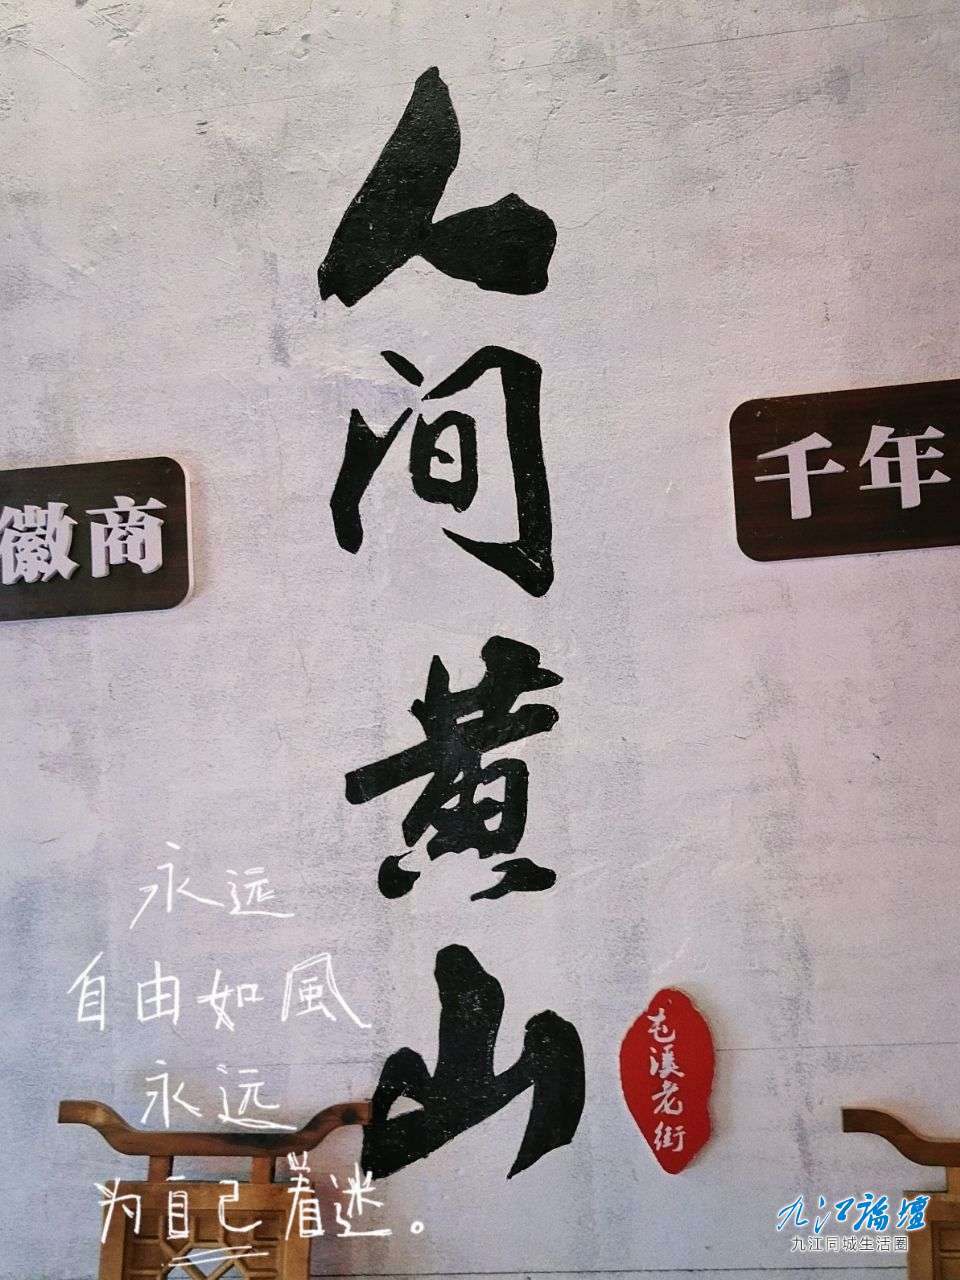 人间黄山
徽商
千年
屯溪老街
永远
自由如風
永远
为自己着迷。
九江論壇
九江同城生活圈